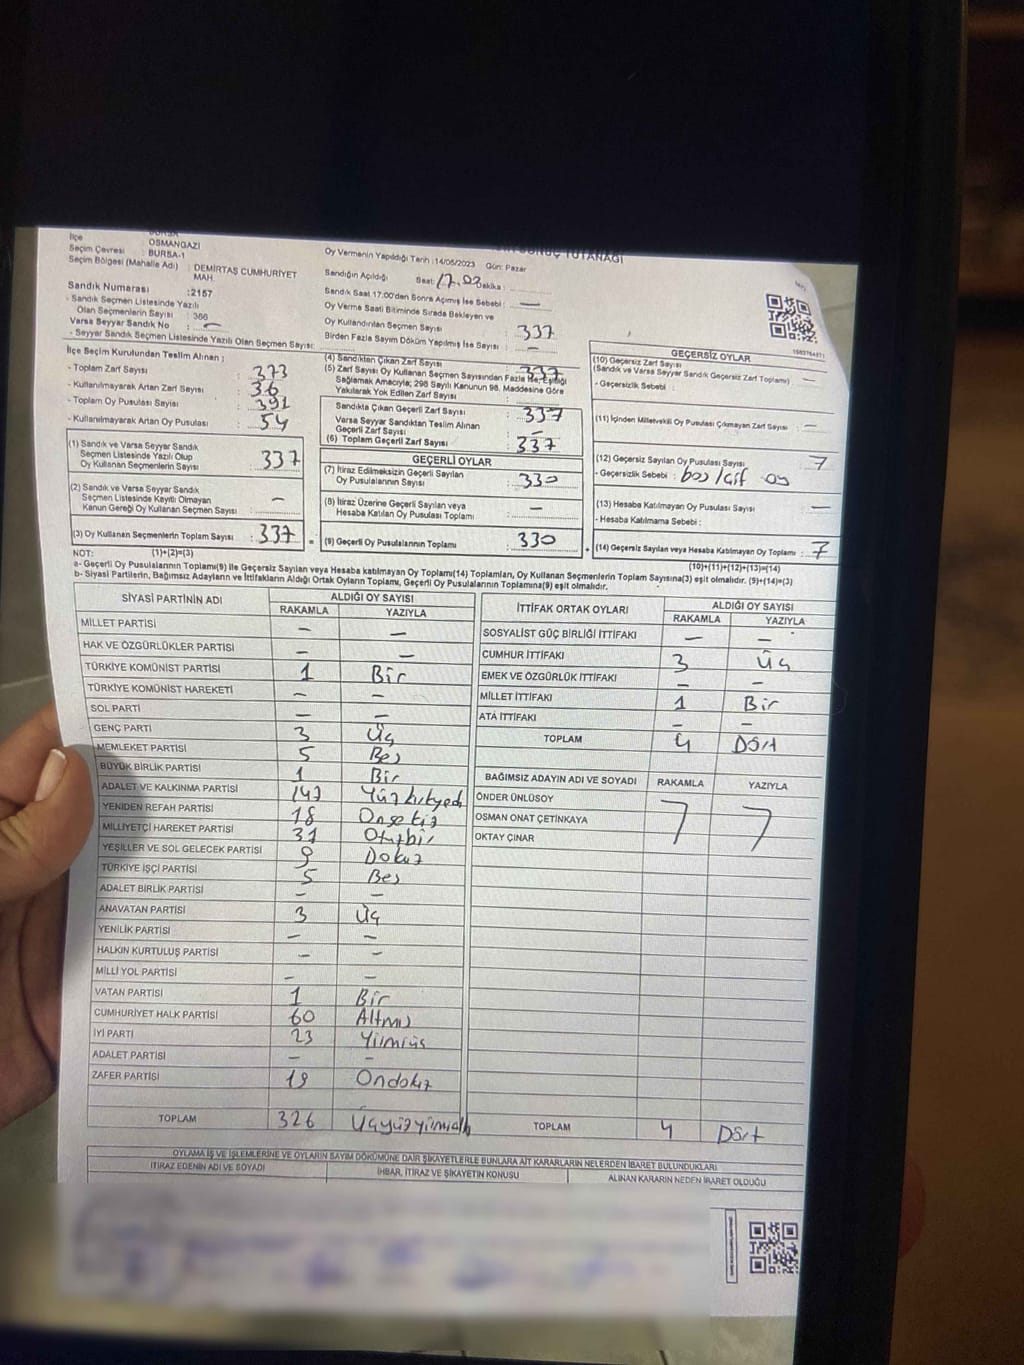 SONUÇ TUTANAĞI
BURSA
İlçe OSMANGAZİ
Seçim Çevresi BURSA-1
Seçim Bölgesi (Mahalle Adı) : DEMİRTAŞ CUMHURİYET MAH.
Sandık Numarası :2157
- Sandık Seçmen Listesinde Yazılı
Olan Seçmenlerin Sayısı : 366
Varsa Seyyar Sandık No : —
- Seyyar Sandık Seçmen Listesinde Yazılı Olan Seçmen Sayısı:
Oy Vermenin Yapıldığı Tarih :14/05/2023 Gün: Pazar
Sandığın Açıldığı Saat: 17.03 Dakika :
Sandık Saat 17:00'den Sonra Açılmış İse Sebebi : —
Oy Verme Saati Bitiminde Sırada Bekleyen ve
Oy Kullandırılan Seçmen Sayısı : 337
Birden Fazla Sayım Döküm Yapılmış İse Sayısı : —
İlçe Seçim Kurulundan Teslim Alınan ;
- Toplam Zarf Sayısı : 373
- Kullanılmayarak Artan Zarf Sayısı : 36
- Toplam Oy Pusulası Sayısı : 391
- Kullanılmayarak Artan Oy Pusulası : 54
(1) Sandık ve Varsa Seyyar Sandık
Seçmen Listesinde Yazılı Olup
Oy Kullanan Seçmenlerin Sayısı : 337
(2) Sandık ve Varsa Seyyar Sandık
Seçmen Listesinde Kayıtlı Olmayan
Kanun Gereği Oy Kullanan Seçmen Sayısı : —
(3) Oy Kullanan Seçmenlerin Toplam Sayısı : 337
(1)+(2)=(3)
(4) Sandıktan Çıkan Zarf Sayısı : 337
(5) Zarf Sayısı Oy Kullanan Seçmen Sayısından Fazla İse, Eşitliği
Sağlamak Amacıyla; 298 Sayılı Kanunun 98. Maddesine Göre
Yakılarak Yok Edilen Zarf Sayısı :
Sandıkta Çıkan Geçerli Zarf Sayısı : 337
Varsa Seyyar Sandıktan Teslim Alınan
Geçerli Zarf Sayısı : —
(6) Toplam Geçerli Zarf Sayısı : 337
GEÇERLİ OYLAR
(7) İtiraz Edilmeksizin Geçerli Sayılan
Oy Pusulalarının Sayısı : 330
(8) İtiraz Üzerine Geçerli Sayılan veya
Hesaba Katılan Oy Pusulası Toplamı : —
= (9) Geçerli Oy Pusulalarının Toplamı : 330
GEÇERSİZ OYLAR
(10) Geçersiz Zarf Sayısı
(Sandık ve Varsa Seyyar Sandık Geçersiz Zarf Toplamı) : —
- Geçersizlik Sebebi :
(11) İçinden Milletvekili Oy Pusulası Çıkmayan Zarf Sayısı : —
(12) Geçersiz Sayılan Oy Pusulası Sayısı : 7
- Geçersizlik Sebebi : boş/çift oy
(13) Hesaba Katılmayan Oy Pusulası Sayısı : —
- Hesaba Katılmama Sebebi :
+ (14) Geçersiz Sayılan veya Hesaba Katılmayan Oy Toplamı : 7
(10)+(11)+(12)+(13)=(14)
NOT:
a- Geçerli Oy Pusulalarının Toplamı(9) ile Geçersiz Sayılan veya Hesaba katılmayan Oy Toplamı(14) Toplamları, Oy Kullanan Seçmenlerin Toplam Sayısına(3) eşit olmalıdır. (9)+(14)=(3)
b- Siyasi Partilerin, Bağımsız Adayların ve İttifakların Aldığı Ortak Oyların Toplamı, Geçerli Oy Pusulalarının Toplamına(9) eşit olmalıdır.
SİYASİ PARTİNİN ADI ALDIĞI OY SAYISI
RAKAMLA YAZIYLA
MİLLET PARTİSİ — —
HAK VE ÖZGÜRLÜKLER PARTİSİ — —
TÜRKİYE KOMÜNİST PARTİSİ 1 Bir
TÜRKİYE KOMÜNİST HAREKETİ — —
SOL PARTİ — —
GENÇ PARTİ 3 Üç
MEMLEKET PARTİSİ 5 Beş
BÜYÜK BİRLİK PARTİSİ 1 Bir
ADALET VE KALKINMA PARTİSİ 147 Yüzkırkyedi
YENİDEN REFAH PARTİSİ 18 Onsekiz
MİLLİYETÇİ HAREKET PARTİSİ 31 Otuzbir
YEŞİLLER VE SOL GELECEK PARTİSİ 9 Dokuz
TÜRKİYE İŞÇİ PARTİSİ 5 Beş
ADALET BİRLİK PARTİSİ — —
ANAVATAN PARTİSİ 3 Üç
YENİLİK PARTİSİ — —
HALKIN KURTULUŞ PARTİSİ — —
MİLLİ YOL PARTİSİ — —
VATAN PARTİSİ 1 Bir
CUMHURİYET HALK PARTİSİ 60 Altmış
İYİ PARTİ 23 Yirmiüç
ADALET PARTİSİ — —
ZAFER PARTİSİ 19 Ondokuz
TOPLAM 326 Üçyüzyirmialtı
İTTİFAK ORTAK OYLARI ALDIĞI OY SAYISI
RAKAMLA YAZIYLA
SOSYALİST GÜÇ BİRLİĞİ İTTİFAKI — —
CUMHUR İTTİFAKI 3 Üç
EMEK VE ÖZGÜRLÜK İTTİFAKI — —
MİLLET İTTİFAKI 1 Bir
ATA İTTİFAKI — —
TOPLAM 4 Dört
BAĞIMSIZ ADAYIN ADI VE SOYADI RAKAMLA YAZIYLA
ÖNDER ÜNLÜSOY
OSMAN ONAT ÇETİNKAYA
OKTAY ÇINAR
TOPLAM 4 Dört
OYLAMA İŞ VE İŞLEMLERİNE VE OYLARIN SAYIM DÖKÜMÜNE DAİR ŞİKAYETLERLE BUNLARA AİT KARARLARIN NELERDEN İBARET BULUNDUKLARI
İTİRAZ EDENİN ADI VE SOYADI İHBAR, İTİRAZ VE ŞİKAYETİN KONUSU ALINAN KARARIN NEDEN İBARET OLDUĞU